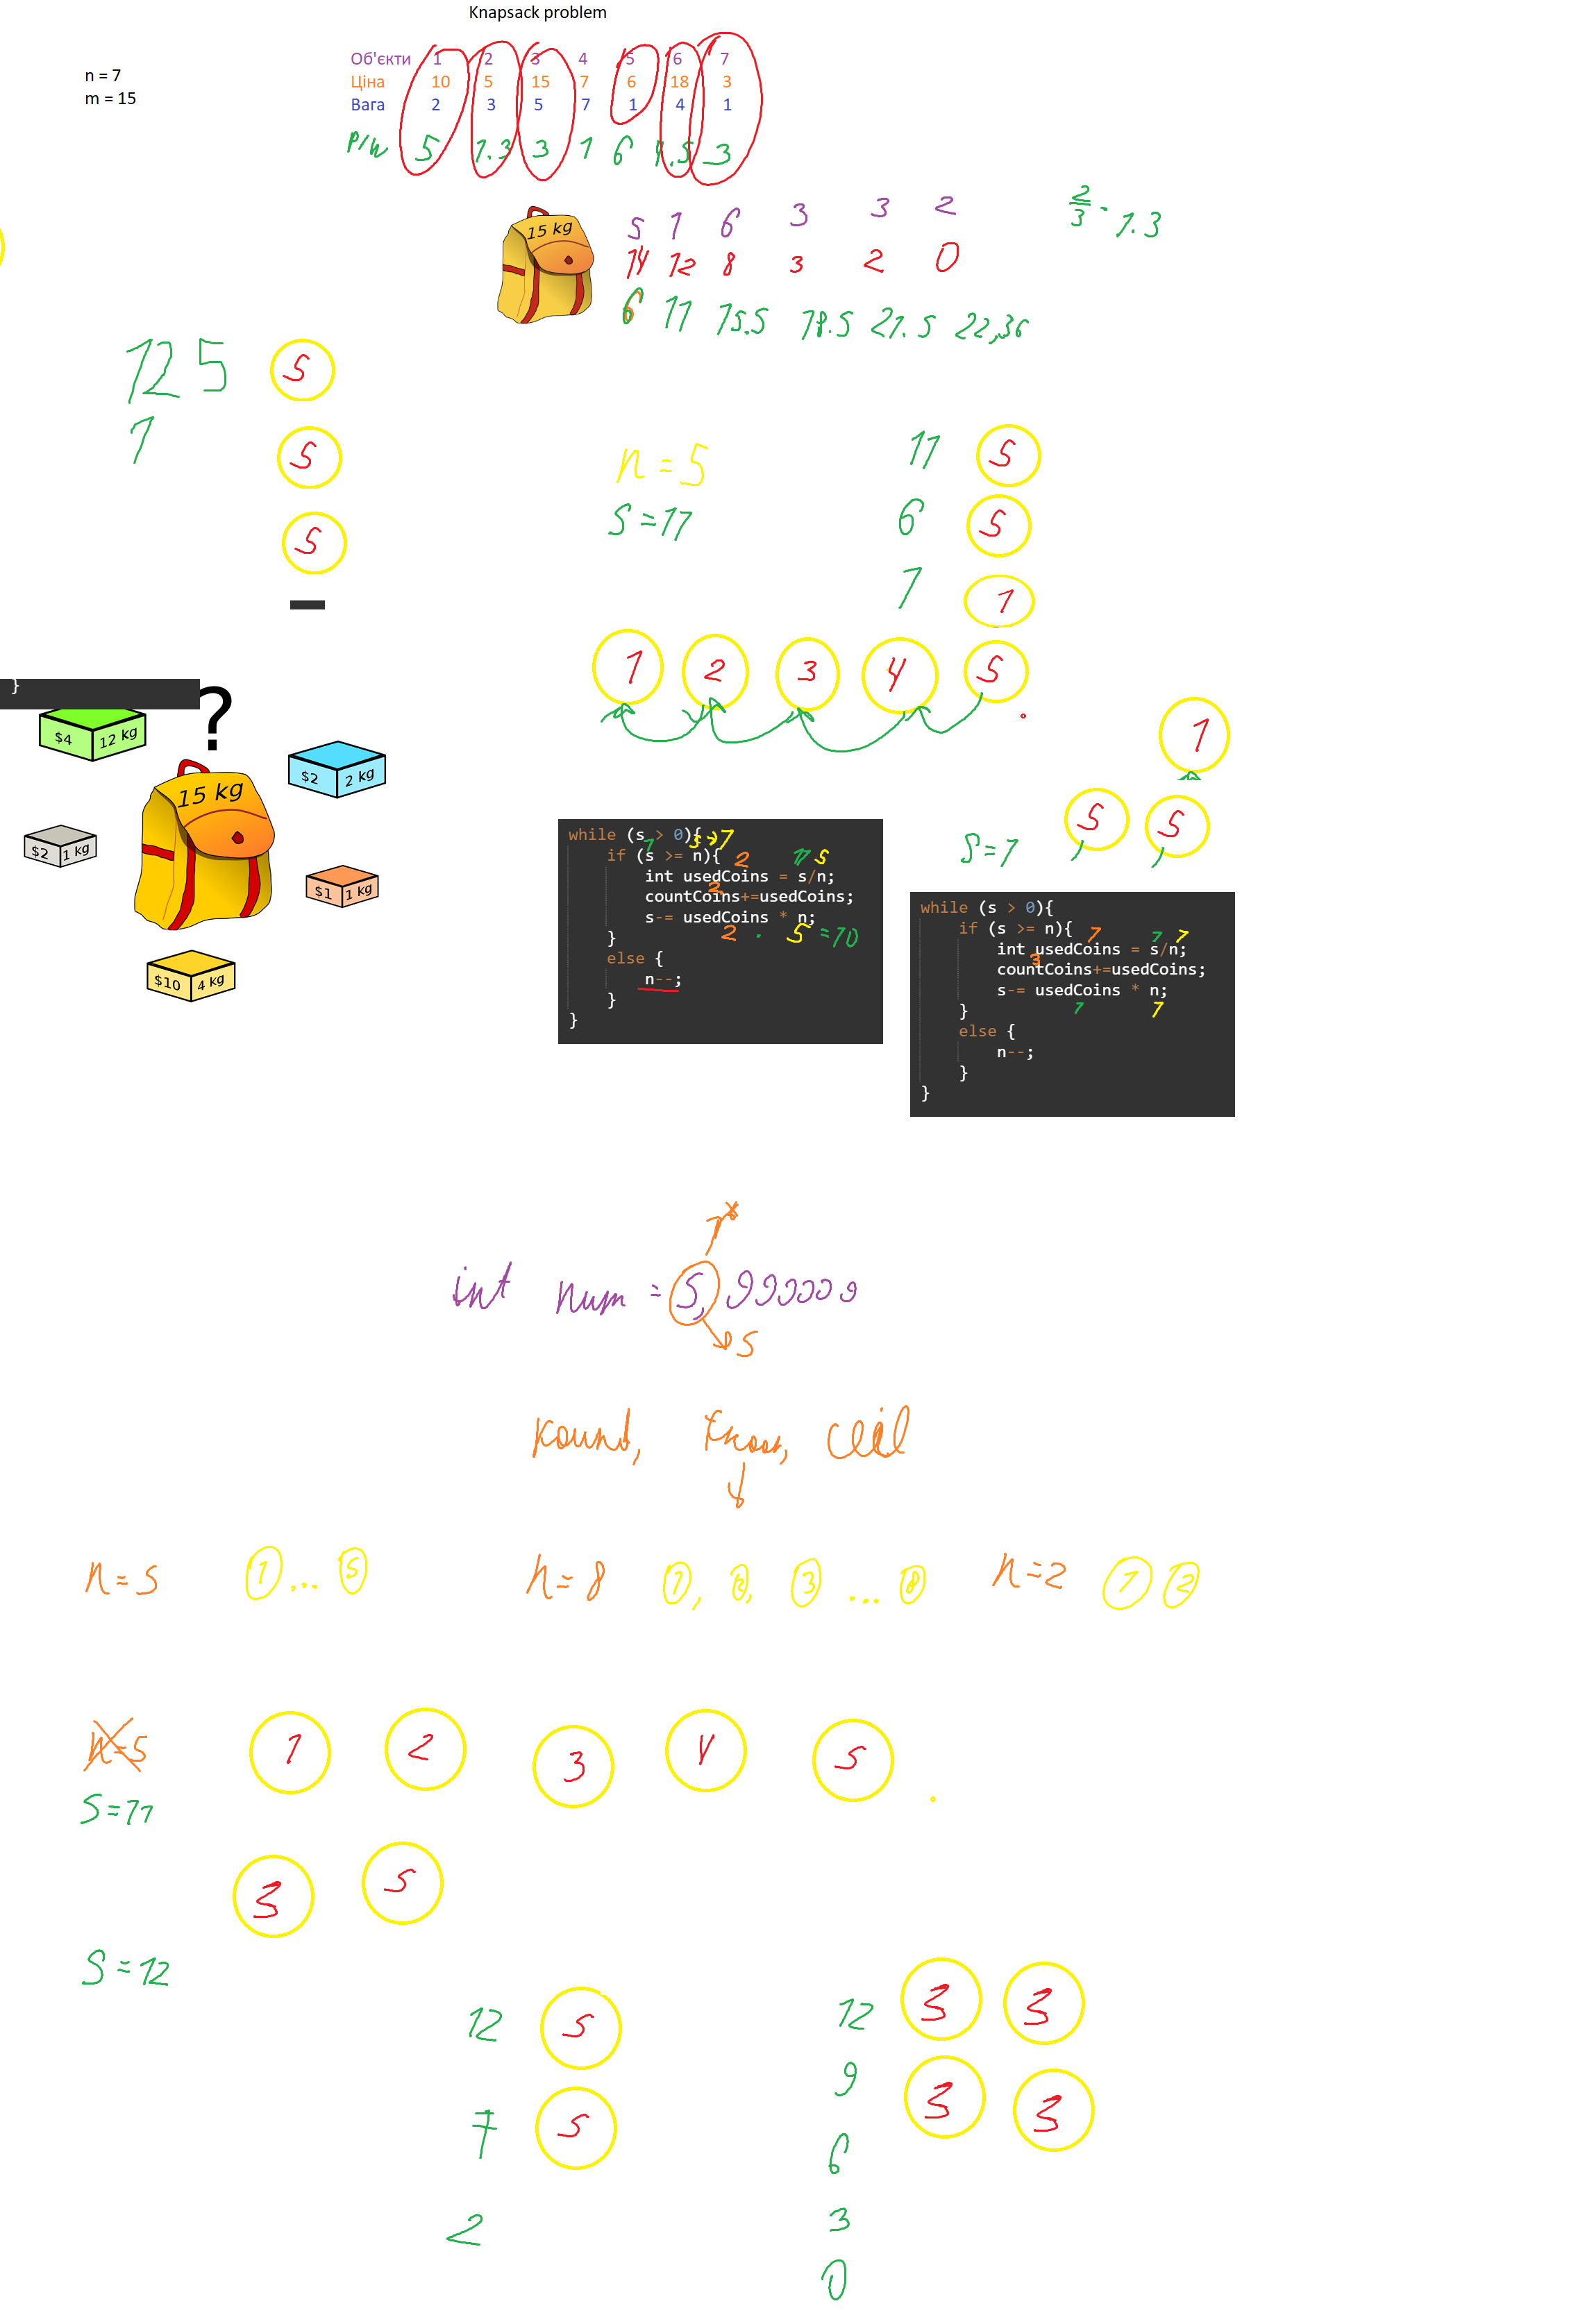 Knapsack problem
n = 7
m = 15
Об'єкти 1 2 3 4 5 6 7
Ціна 10 5 15 7 6 18 3
Вага 2 3 5 7 1 4 1
P/W 5 1.3 3 1 6 4.5 3
15 kg
5 1 6 3 3 2
14 12 8 3 2 0
6 11 15.5 18.5 21.5 22,36
2/3 · 1.3
125 5
1 5
5
n = 5
S = 11
11 5
6 5
1 1
1 2 3 4 5
}
?
$4 12 kg
$2 2 kg
15 kg
$2 1 kg
$1 1 kg
$10 4 kg
1
5 5
S = 1
while (s > 0){
if (s >= n){
int usedCoins = s/n;
countCoins+=usedCoins;
s-= usedCoins * n;
2 · 5 = 10
}
else {
n--;
}
}
while (s > 0){
if (s >= n){
int usedCoins = s/n;
countCoins+=usedCoins;
s-= usedCoins * n;
}
else {
n--;
}
}
int num = 5,999999
5
round, floor, ceil
n = 5 1 ... 5
n = 8 1, 2, 3 ... 8
n = 2 1 2
n = 5 1 2 3 4 5
S = 11
3 5
S = 12
12 5
7 5
2
12 3 3
9 3 3
6
3
0